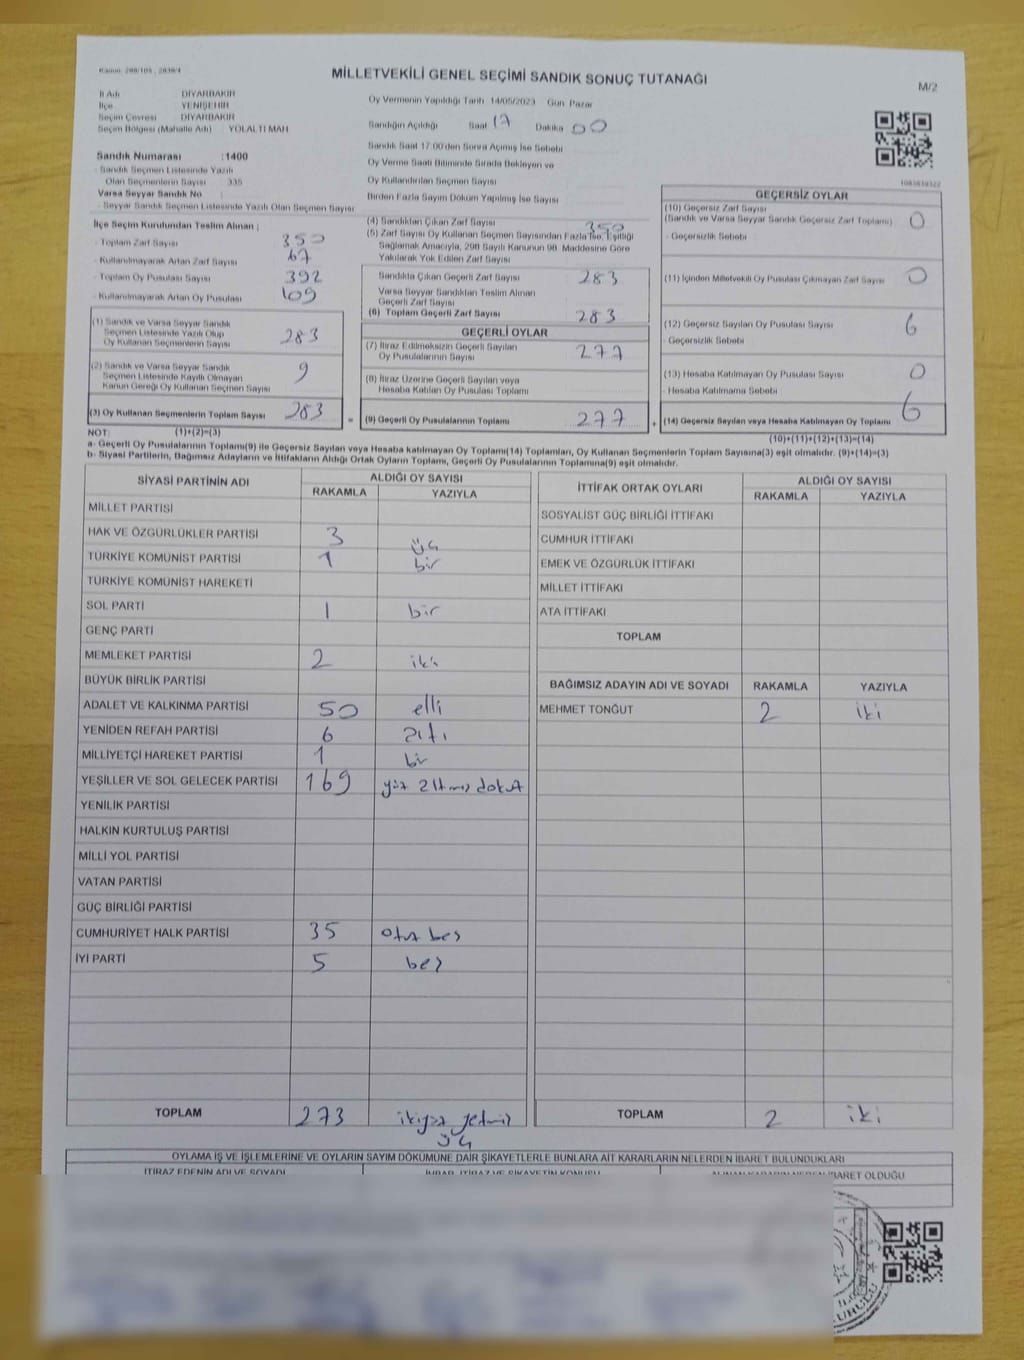 Kanun: 298/105 , 2839/4
MİLLETVEKİLİ GENEL SEÇİMİ SANDIK SONUÇ TUTANAĞI
M/2
İl Adı DİYARBAKIR
İlçe YENİŞEHİR
Seçim Çevresi DİYARBAKIR
Seçim Bölgesi (Mahalle Adı) YOLALTI MAH
Oy Vermenin Yapıldığı Tarih 14/05/2023 Gün Pazar
Sandığın Açıldığı Saat 17 Dakika 00
Sandık Saat 17:00'den Sonra Açılmış İse Sebebi
Oy Verme Saati Bitiminde Sırada Bekleyen ve
Oy Kullandırılan Seçmen Sayısı
Birden Fazla Sayım Döküm Yapılmış İse Sayısı
Sandık Numarası :1400
- Sandık Seçmen Listesinde Yazılı
Olan Seçmenlerin Sayısı : 335
Varsa Seyyar Sandık No :
- Seyyar Sandık Seçmen Listesinde Yazılı Olan Seçmen Sayısı :
İlçe Seçim Kurulundan Teslim Alınan ;
- Toplam Zarf Sayısı 350
- Kullanılmayarak Artan Zarf Sayısı 67
- Toplam Oy Pusulası Sayısı 392
- Kullanılmayarak Artan Oy Pusulası 109
(1) Sandık ve Varsa Seyyar Sandık
Seçmen Listesinde Yazılı Olup
Oy Kullanan Seçmenlerin Sayısı 283
(2) Sandık ve Varsa Seyyar Sandık
Seçmen Listesinde Kayıtlı Olmayan
Kanun Gereği Oy Kullanan Seçmen Sayısı 9
(3) Oy Kullanan Seçmenlerin Toplam Sayısı 283
(4) Sandıktan Çıkan Zarf Sayısı 350
(5) Zarf Sayısı Oy Kullanan Seçmen Sayısından Fazla İse, Eşitliği
Sağlamak Amacıyla, 298 Sayılı Kanunun 98. Maddesine Göre
Yakılarak Yok Edilen Zarf Sayısı
Sandıkta Çıkan Geçerli Zarf Sayısı 283
Varsa Seyyar Sandıktan Teslim Alınan
Geçerli Zarf Sayısı
(6) Toplam Geçerli Zarf Sayısı 283
GEÇERLİ OYLAR
(7) İtiraz Edilmeksizin Geçerli Sayılan
Oy Pusulalarının Sayısı 277
(8) İtiraz Üzerine Geçerli Sayılan veya
Hesaba Katılan Oy Pusulası Toplamı
= (9) Geçerli Oy Pusulalarının Toplamı 277
GEÇERSİZ OYLAR
(10) Geçersiz Zarf Sayısı
(Sandık ve Varsa Seyyar Sandık Geçersiz Zarf Toplamı) 0
- Geçersizlik Sebebi
(11) İçinden Milletvekili Oy Pusulası Çıkmayan Zarf Sayısı 0
(12) Geçersiz Sayılan Oy Pusulası Sayısı 6
- Geçersizlik Sebebi
(13) Hesaba Katılmayan Oy Pusulası Sayısı 0
- Hesaba Katılmama Sebebi
+ (14) Geçersiz Sayılan veya Hesaba Katılmayan Oy Toplamı 6
NOT: (1)+(2)=(3)
(10)+(11)+(12)+(13)=(14)
a- Geçerli Oy Pusulalarının Toplamı(9) ile Geçersiz Sayılan veya Hesaba katılmayan Oy Toplamı(14) Toplamları, Oy Kullanan Seçmenlerin Toplam Sayısına(3) eşit olmalıdır. (9)+(14)=(3)
b- Siyasi Partilerin, Bağımsız Adayların ve İttifakların Aldığı Ortak Oyların Toplamı, Geçerli Oy Pusulalarının Toplamına(9) eşit olmalıdır.
SİYASİ PARTİNİN ADI ALDIĞI OY SAYISI
RAKAMLA YAZIYLA
MİLLET PARTİSİ
HAK VE ÖZGÜRLÜKLER PARTİSİ 3 üç
TÜRKİYE KOMÜNİST PARTİSİ 1 bir
TÜRKİYE KOMÜNİST HAREKETİ
SOL PARTİ 1 bir
GENÇ PARTİ
MEMLEKET PARTİSİ 2 iki
BÜYÜK BİRLİK PARTİSİ
ADALET VE KALKINMA PARTİSİ 50 elli
YENİDEN REFAH PARTİSİ 6 altı
MİLLİYETÇİ HAREKET PARTİSİ 1 bir
YEŞİLLER VE SOL GELECEK PARTİSİ 169 yüz altmış dokuz
YENİLİK PARTİSİ
HALKIN KURTULUŞ PARTİSİ
MİLLİ YOL PARTİSİ
VATAN PARTİSİ
GÜÇ BİRLİĞİ PARTİSİ
CUMHURİYET HALK PARTİSİ 35 otuz beş
İYİ PARTİ 5 beş
TOPLAM 273 ikiyüz yetmiş
üç
İTTİFAK ORTAK OYLARI ALDIĞI OY SAYISI
RAKAMLA YAZIYLA
SOSYALİST GÜÇ BİRLİĞİ İTTİFAKI
CUMHUR İTTİFAKI
EMEK VE ÖZGÜRLÜK İTTİFAKI
MİLLET İTTİFAKI
ATA İTTİFAKI
TOPLAM
BAĞIMSIZ ADAYIN ADI VE SOYADI RAKAMLA YAZIYLA
MEHMET TONĞUT 2 iki
TOPLAM 2 iki
OYLAMA İŞ VE İŞLEMLERİNE VE OYLARIN SAYIM DÖKÜMÜNE DAİR ŞİKAYETLERLE BUNLARA AİT KARARLARIN NELERDEN İBARET BULUNDUKLARI
İTİRAZ EDENİN ADI VE SOYADI İHBAR, İTİRAZ VE ŞİKAYETİN KONUSU ALINAN KARARIN NEDEN İBARET OLDUĞU